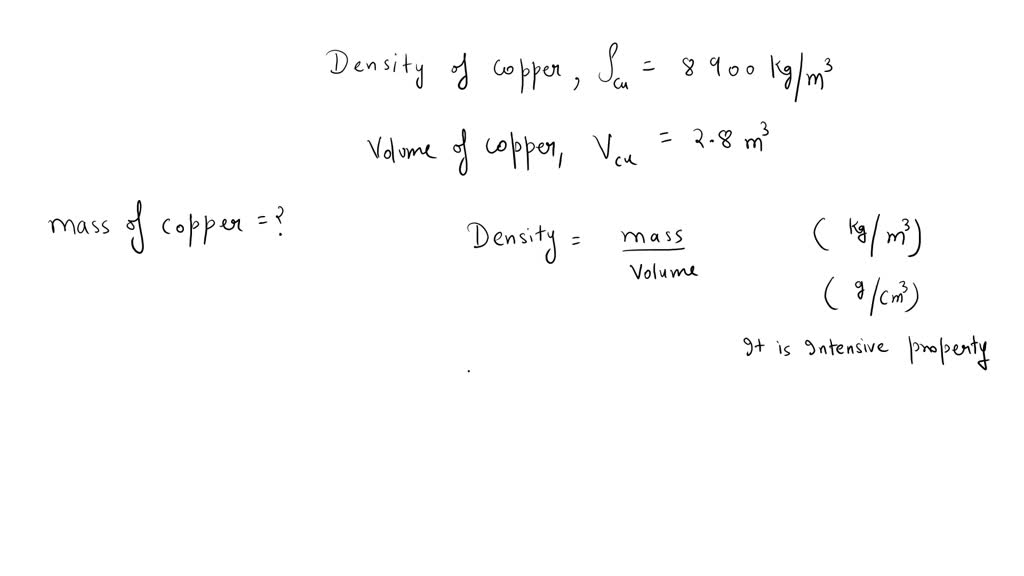 Density of copper, ρcu = 8900 kg/m³
Volume of copper, Vcu = 2.8 m³
mass of copper = ?
Density = mass/Volume (kg/m³)
(g/cm³)
It is Intensive property